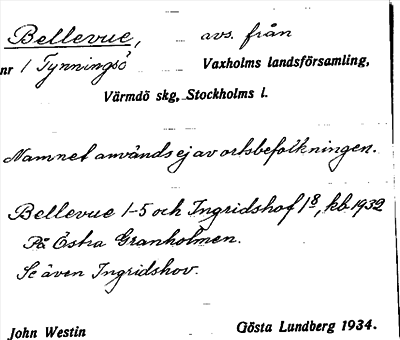 Bellevue, avs. från
nr 1 Tynningsö Vaxholms landsförsamling,
Värmdö skg, Stockholms l.
Namnet användsej av ortsbefolkningen.
Bellevue 1-5 och Ingridshof 1⁸, kb. 1932
På Östra Granholmen.
Se även Ingridshov.
John Westin Gösta Lundberg 1934.